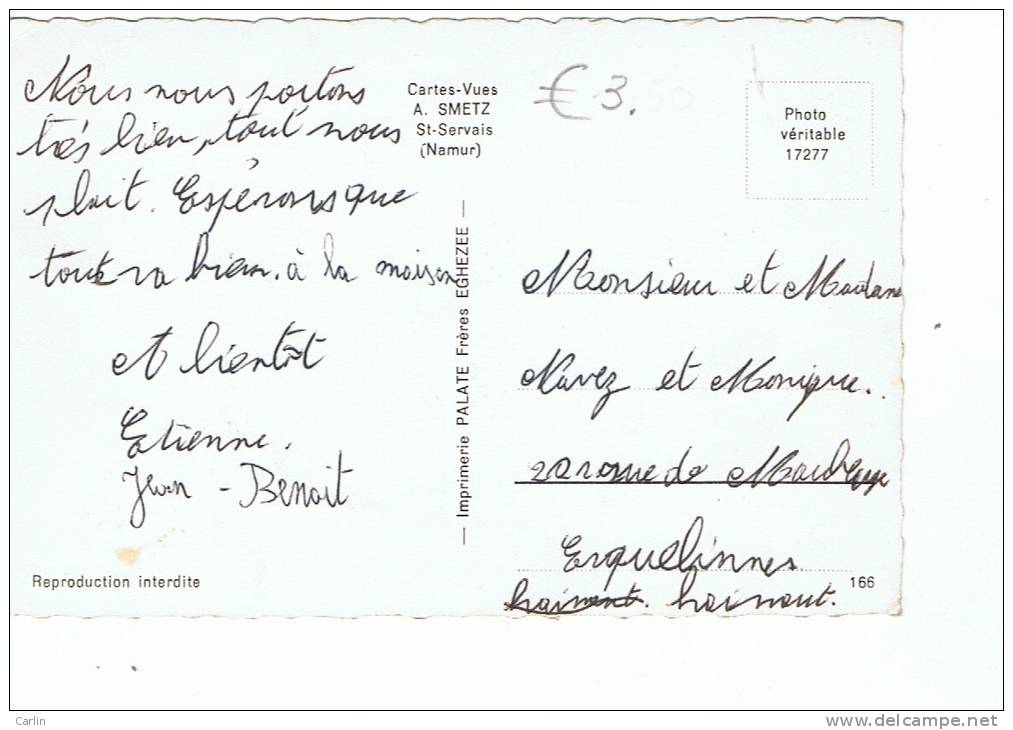 Nous nous portons
très bien, tout nous
plait. Espérons que
tout va bien. à la maison
A bientôt
Etienne.
Jean - Benoit
Reproduction interdite
Cartes-Vues
A. SMETZ
St-Servais
(Namur)
— Imprimerie PALATE Frères EGHEZEE —
€ 3.50
Photo
véritable
17277
Monsieur et Madame
Navez et Monique.
rue de Maubeuge
Erquelinnes
hainaut. hainaut.
166
Carlin
delcampe.net